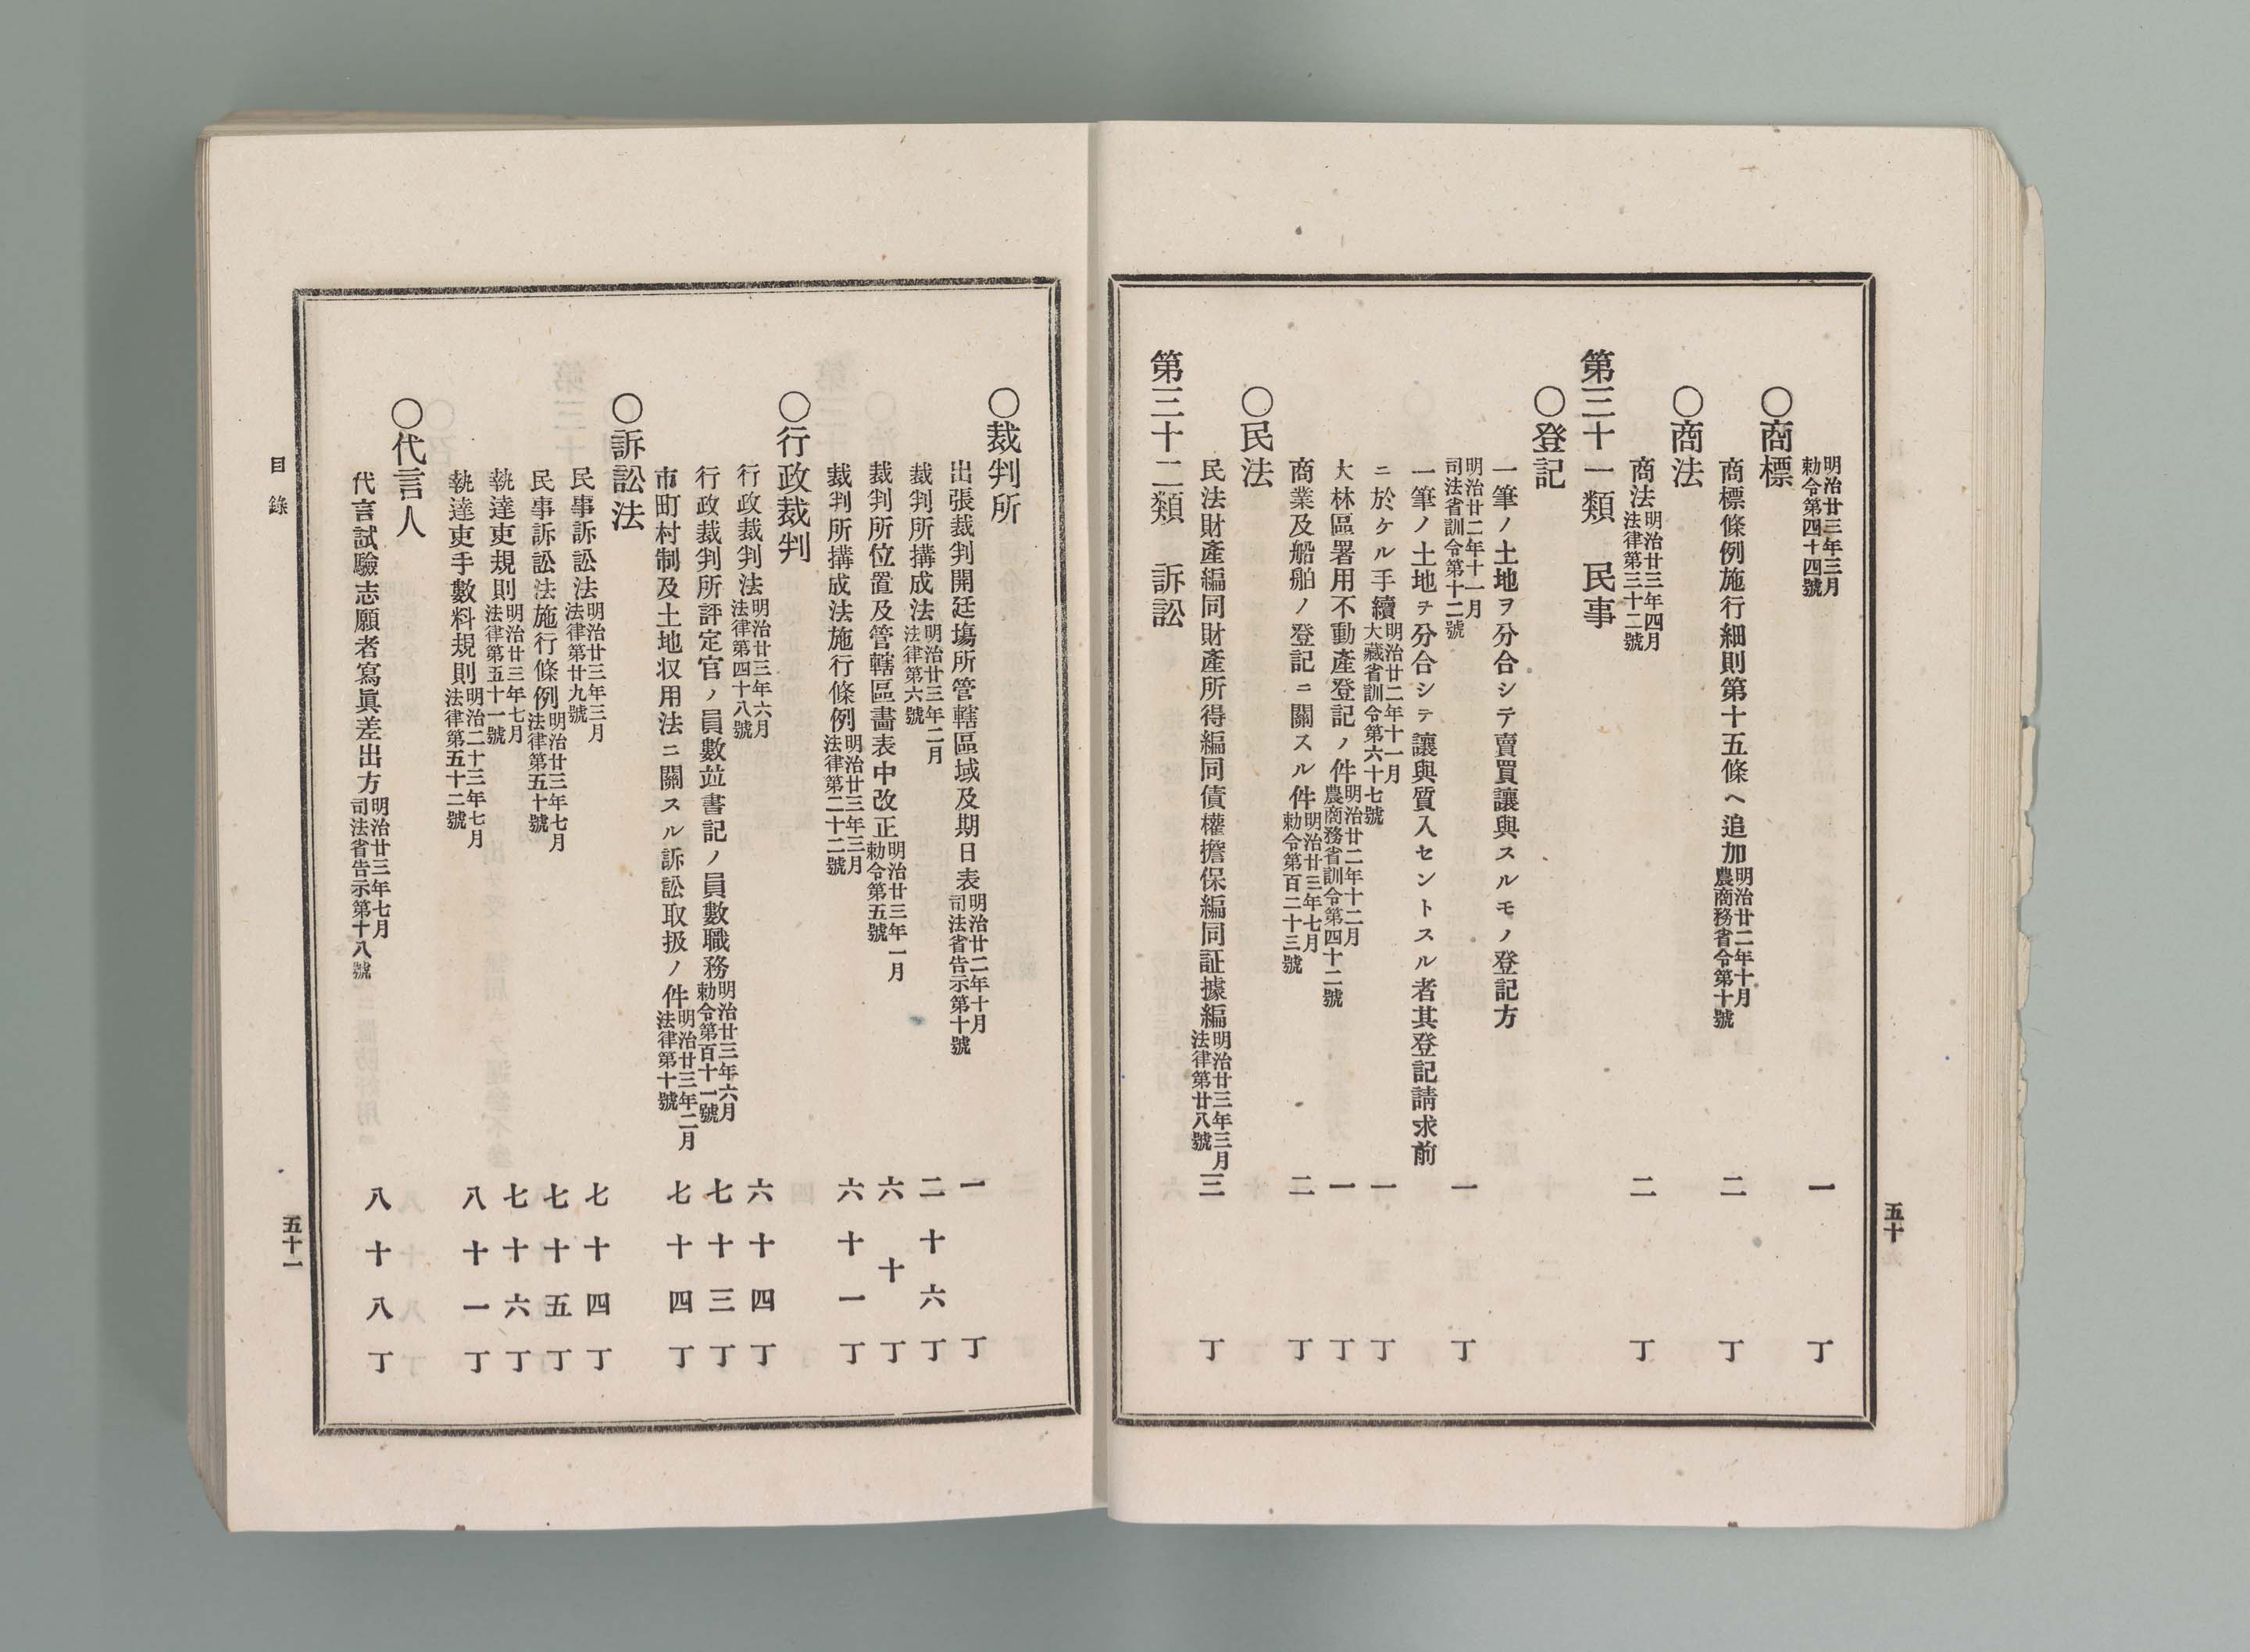 明治廿三年三月
勅令第四十四號 一丁
〇商標
商標條例施行細則第十五條ヘ追加 明治廿二年十月 農商務省令第十號 二丁
〇商法
商法 明治廿三年四月 法律第三十二號 二丁
第三十一類 民事
〇登記
一筆ノ土地ヲ分合シテ賣買讓與スルモノ登記方
明治廿二年十一月 司法省訓令第十二號 一丁
一筆ノ土地チ分合シテ讓與質入セントスル者其登記請求前
ニ於ケル手續 明治廿二年十一月 大藏省訓令第六十七號 一丁
大林區署用不動產登記ノ件 明治廿二年十二月 農商務省訓令第四十二號 一丁
商業及船舶ノ登記ニ關スル件 明治廿三年七月 勅令第百二十三號 二丁
〇民法
民法財產編同財產所得編同債權擔保編同証據編 明治廿三年三月 法律第廿八號 三丁
第三十二類 訴訟
五十
〇裁判所
出張裁判開廷塲所管轄區域及期日表 明治廿二年十月 司法省告示第十號 一丁
裁判所搆成法 明治廿三年二月 法律第六號 二十六丁
裁判所位置及管轄區畵表中改正 明治廿三年一月 勅令第五號 六十丁
裁判所搆成法施行條例 明治廿三年三月 法律第二十二號 六十一丁
〇行政裁判
行政裁判法 明治廿三年六月 法律第四十八號 六十四丁
行政裁判所評定官ノ員數並書記ノ員數職務 明治廿三年六月 勅令第百十一號 七十三丁
市町村制及土地収用法ニ關スル訴訟取扱ノ件 明治廿三年二月 法律第十號 七十四丁
〇訴訟法
民事訴訟法 明治廿三年三月 法律第廿九號 七十四丁
民事訴訟法施行條例 明治廿三年七月 法律第五十號 七十五丁
執達吏規則 明治廿三年七月 法律第五十一號 七十六丁
執達吏手數料規則 明治二十三年七月 法律第五十二號 八十一丁
〇代言人
代言試驗志願者寫眞差出方 明治廿三年七月 司法省告示第十八號 八十八丁
目錄
五十一